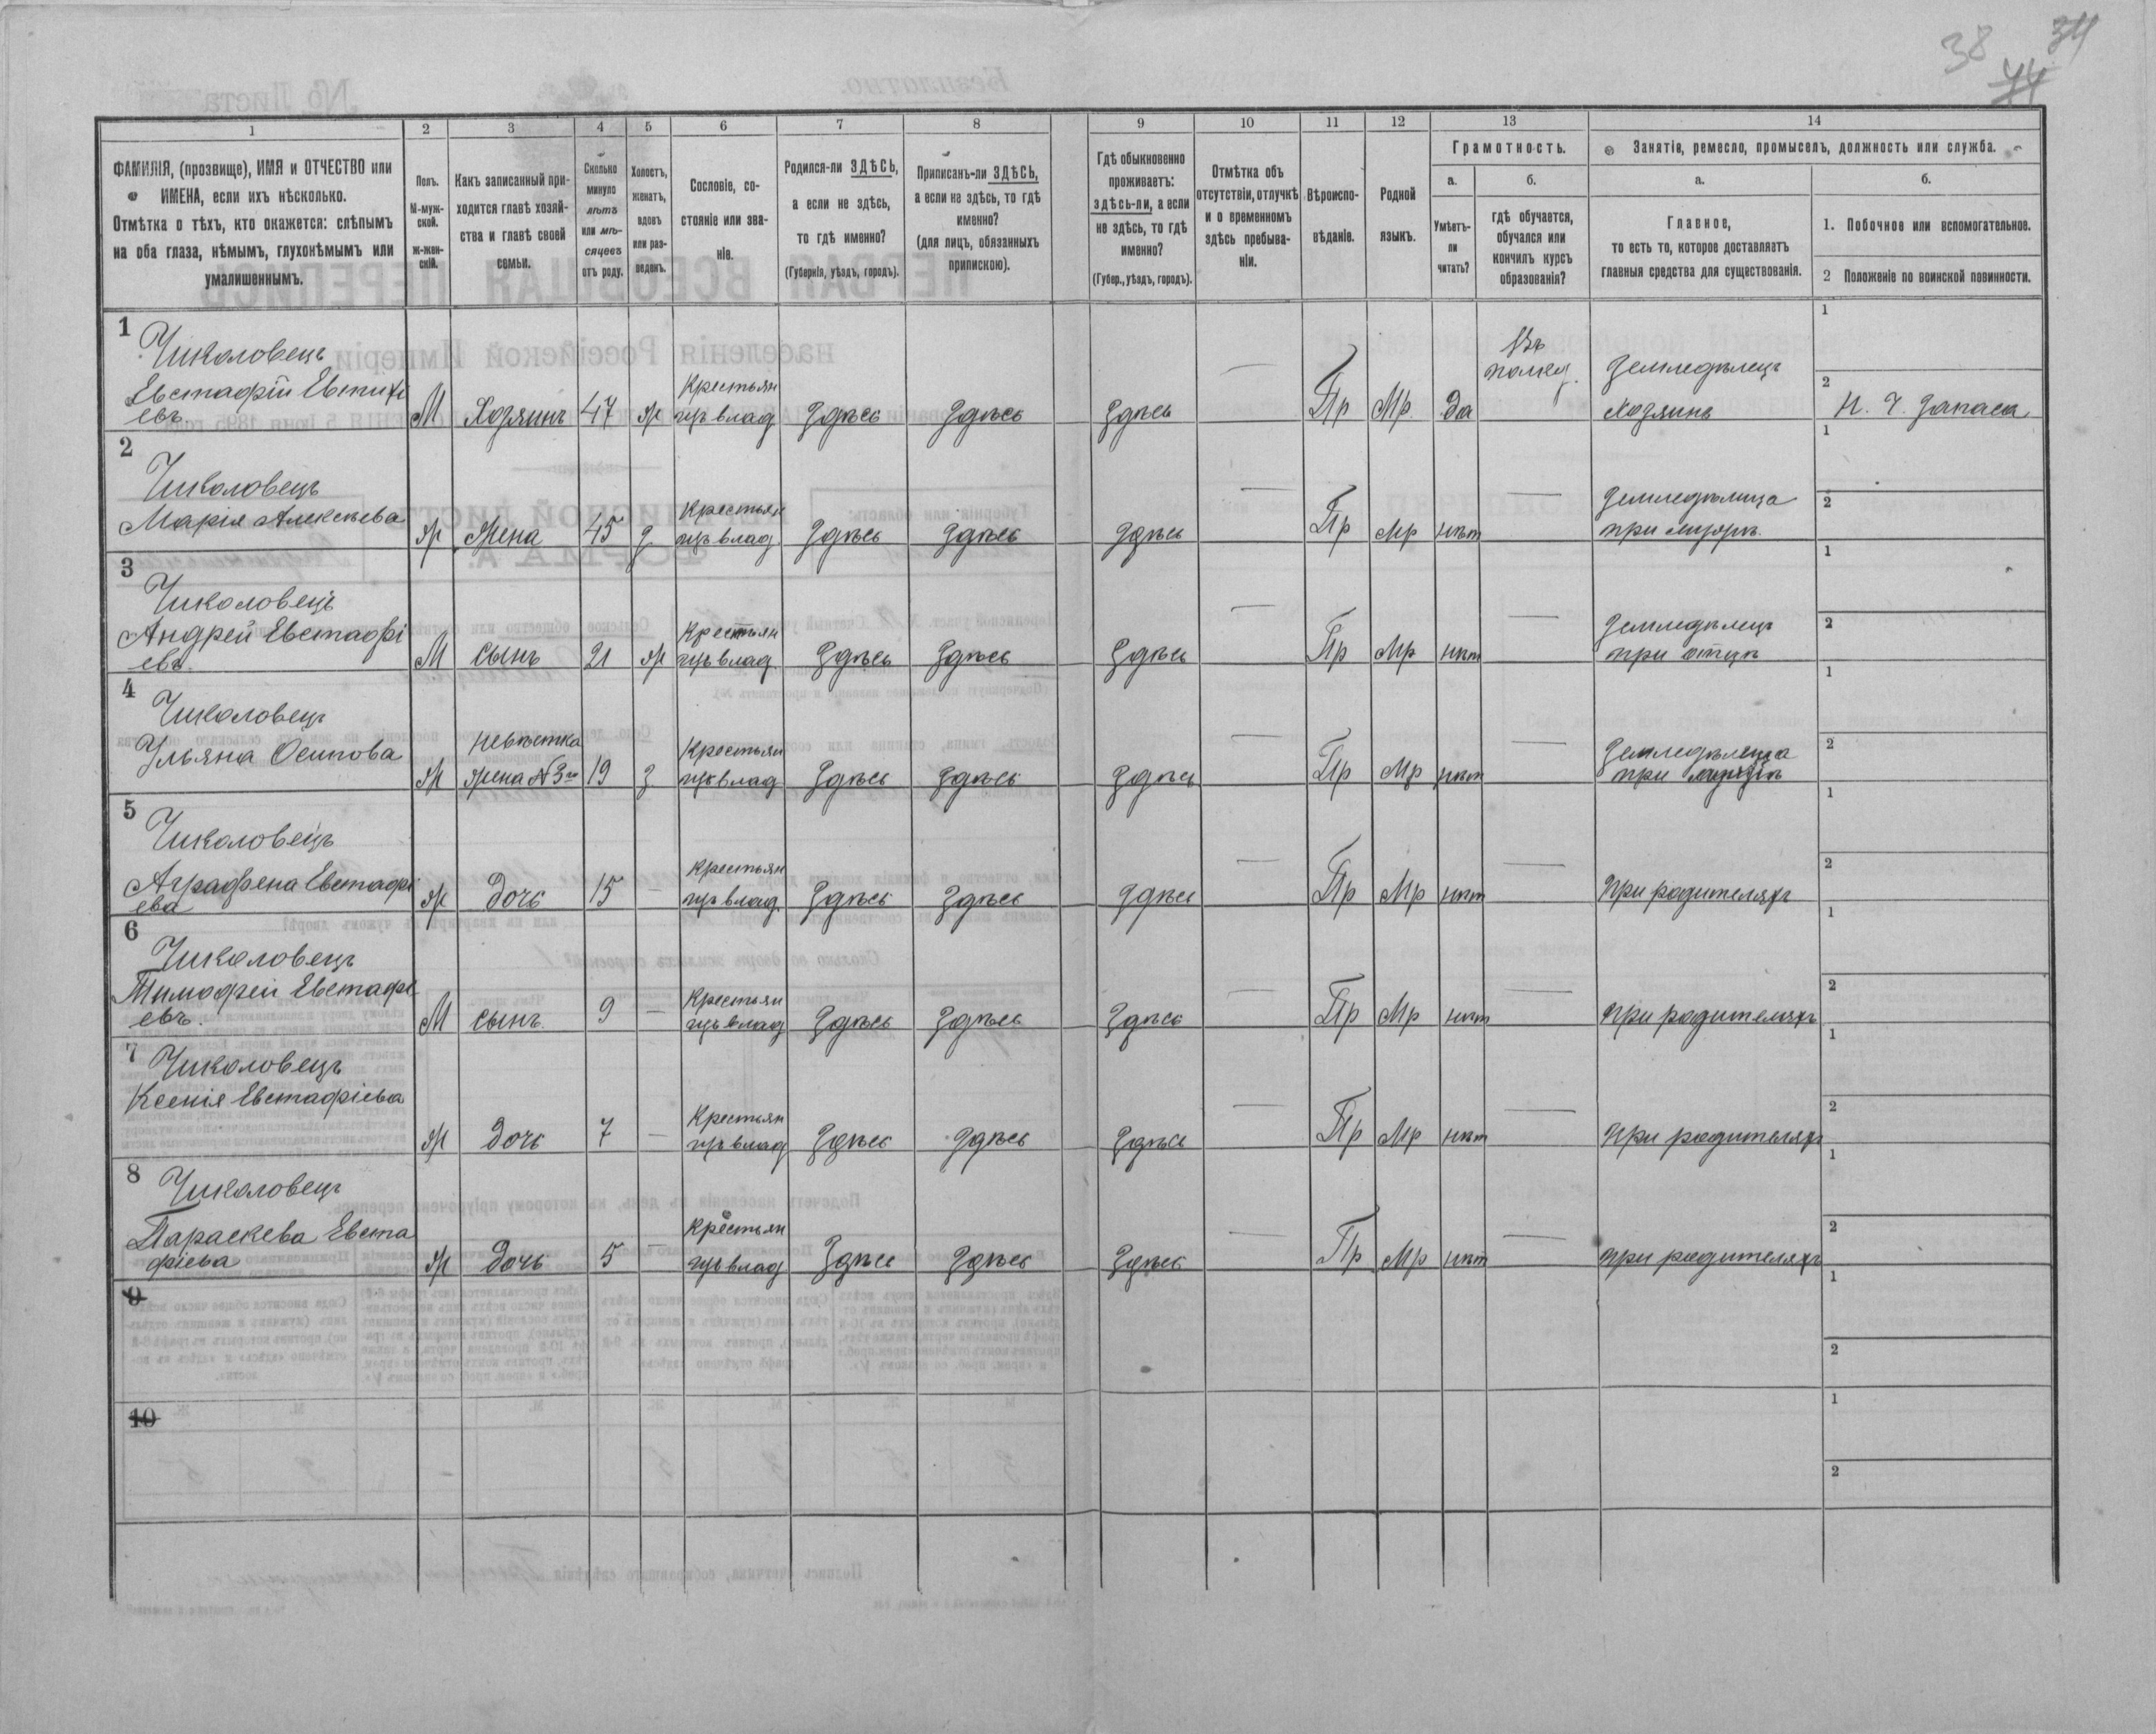 38 34
44
1 2 3 4 5 6 7 8 9 10 11 12 13 14
ФАМИЛІЯ, (прозвище), ИМЯ и ОТЧЕСТВО или
ИМЕНА, если ихъ нѣсколько.
Отмѣтка о тѣхъ, кто окажется: слѣпымъ
на оба глаза, нѣмымъ, глухонѣмымъ или
умалишеннымъ.
Полъ.
М-муж-
ской.
ж-жен-
скій.
Какъ записанный при-
ходится главѣ хозяй-
ства и главѣ своей
семьи.
Сколько
минуло
лѣтъ
или мѣ-
сяцевъ
отъ роду.
Холостъ,
женатъ,
вдовъ
или раз-
веденъ.
Сословіе, со-
стояніе или зва-
ніе.
Родился-ли ЗДѢСЬ,
а если не здѣсь,
то гдѣ именно?
(Губернія, уѣздъ, городъ).
Приписанъ-ли ЗДѢСЬ,
а если не здѣсь, то гдѣ
именно?
(для лицъ, обязанныхъ
припискою).
Гдѣ обыкновенно
проживаетъ:
здѣсь-ли, а если
не здѣсь, то гдѣ
именно?
(Губер., уѣздъ, городъ).
Отмѣтка объ
отсутствіи, отлучкѣ
и о временномъ
здѣсь пребыва-
ніи.
Вѣроиспо-
вѣданіе.
Родной
языкъ.
Грамотность.
а.
Умѣетъ-
ли
читать?
б.
гдѣ обучается,
обучался или
кончилъ курсъ
образованія?
Занятіе, ремесло, промыселъ, должность или служба.
а.
Главное,
то есть то, которое доставляетъ
главныя средства для существованія.
б.
1. Побочное или вспомогательное.
2 Положеніе по воинской повинности.
1
Чиколовецъ
Евстафій Евтихі
евъ
М Хозяинъ 47 ж Крестьян
изъ влад Здѣсь Здѣсь Здѣсь — Пр Мр. да Въ
полку. Земледѣлецъ
хозяинъ
1
2 Н. Ч. Запаса
2
Чиколовецъ
Марія Алексѣева
ж Жена 45 з Крестьян
изъ влад Здѣсь Здѣсь Здѣсь — Пр Мр нѣт — Земледѣлица
при мужѣ.
1
2
3
Чиколовецъ
Андрей Евстафі
евъ
М сынъ 21 ж Крестьян
изъ влад Здѣсь Здѣсь Здѣсь — Пр Мр нѣт — Земледѣлецъ
при отцѣ
1
2
4
Чиколовецъ
Ульяна Осипова
ж невѣстка
жена №3го 19 з Крестьян
изъ влад Здѣсь Здѣсь Здѣсь — Пр Мр нѣт — Земледѣлица
при мужѣ
1
2
5
Чиколовецъ
Аграфена Евстафі
ева
ж дочь 15 — Крестьян
изъ влад Здѣсь Здѣсь Здѣсь — Пр Мр нѣт — при родителяхъ
1
2
6
Чиколовецъ
Тимофей Евстафі
евъ.
М сынъ. 9 — Крестьян
изъ влад Здѣсь Здѣсь Здѣсь — Пр Мр нѣт — при родителяхъ
1
2
7
Чиколовецъ
Ксенія Евстафіева
ж дочь 7 — Крестьян
изъ влад Здѣсь Здѣсь Здѣсь — Пр Мр нѣт — при родителях
1
2
8
Чиколовецъ
Параскева Евста
фіева
ж дочь 5 — Крестьян
изъ влад Здѣсь Здѣсь Здѣсь — Пр Мр нѣт — при родителяхъ
1
2
9
1
2
10
1
2